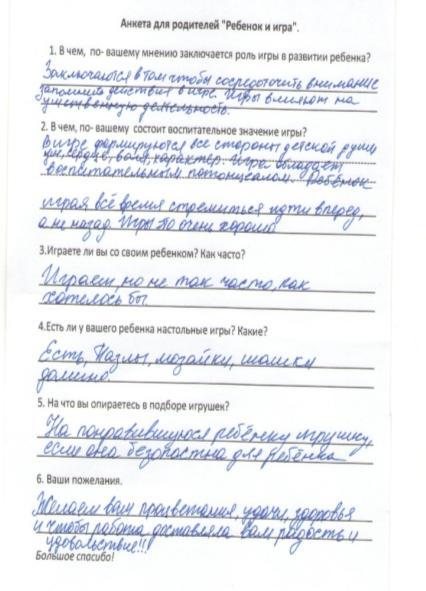 Анкета для родителей "Ребенок и игра".
1. В чем, по- вашему мнению заключается роль игры в развитии ребенка?
Заключается в том чтобы сосредоточить внимание
запомнить действия в игре. Игры влияют на
умственную деятельность.
2. В чем, по- вашему состоит воспитательное значение игры?
В игре формируются все стороны детской души
ум, сердце, воля, характер. Игра обладает
воспитательным потонцеалом. Ребёнок
играя всё время стремиться идти вперед,
а не назад. Игры это очень хорошо
3.Играете ли вы со своим ребенком? Как часто?
Играем, но не так часто, как
хотелось бы
4.Есть ли у вашего ребенка настольные игры? Какие?
Есть, Пазлы, мозайки, шашки
домино.
5. На что вы опираетесь в подборе игрушек?
На понравившуюся ребёнку игрушку,
если она безопастна для ребёнка
6. Ваши пожелания.
Желаем вам процветания, удачи, здоровья
и чтобы работа доставляла вам радость и
удовольствие!!!
Большое спасибо!